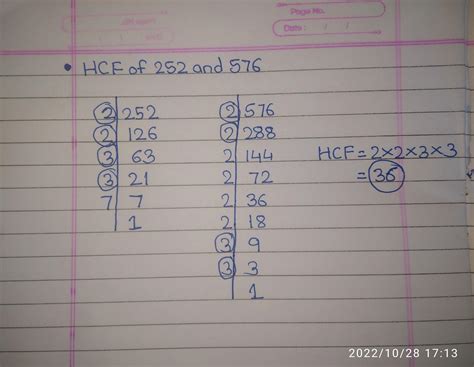 Page No.
Date : / /
• HCF of 252 and 576
2 | 252
2 | 126
3 | 63
3 | 21
7 | 7
1
2 | 576
2 | 288
2 | 144
2 | 72
2 | 36
2 | 18
3 | 9
3 | 3
1
HCF = 2×2×3×3
= 36
2022/10/28 17:13